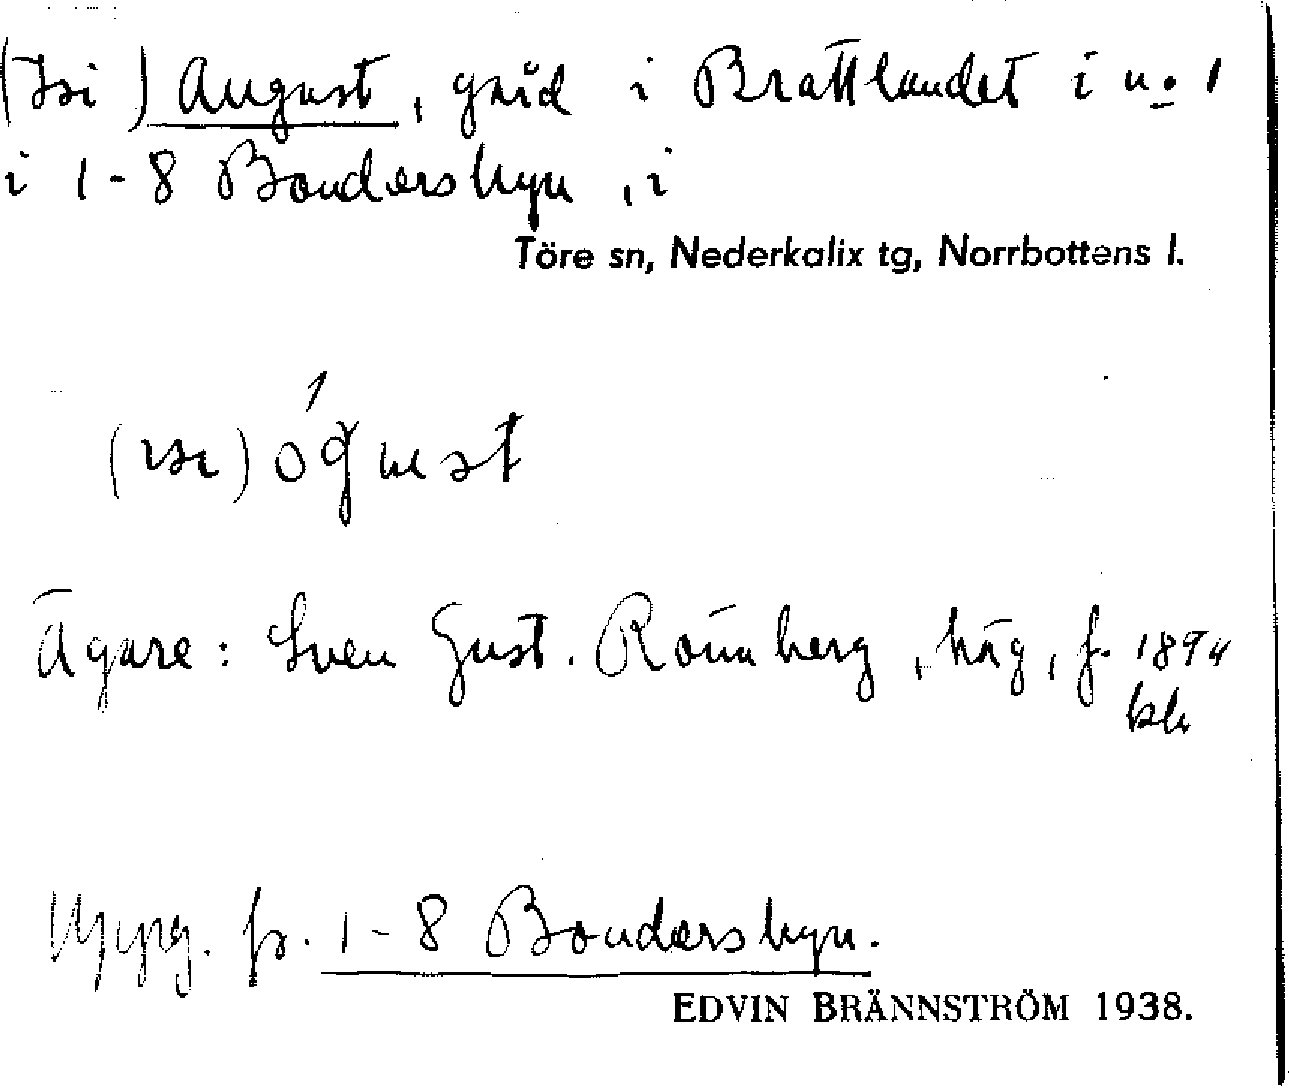 (Isi) August, gård i Brattlandet i no 1
i 1-8 Bondersbyn, i
Töre sn, Nederkalix tg, Norrbottens l.
Ägare: Sven Gust. Rönnberg, häg, f. 1894
Uppg. fr. 1-8 Bondersbyn.
EDVIN BRÄNNSTRÖM 1938.